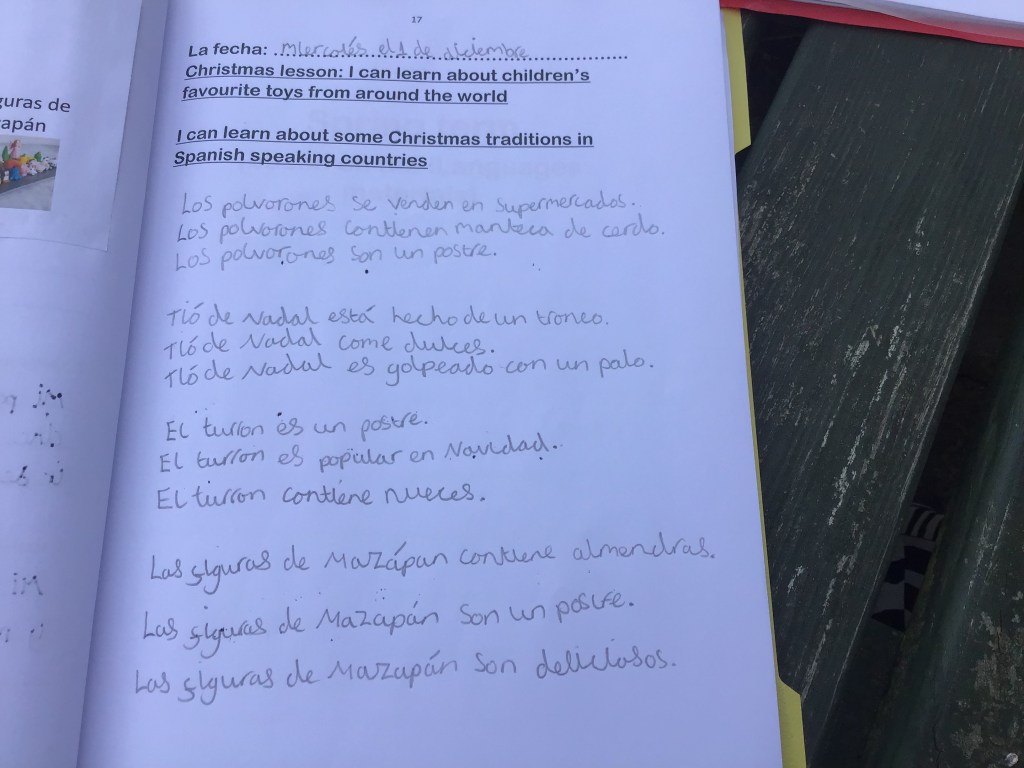 17
guras de
apán
La fecha: Miercolés el 1 de diciembre
Christmas lesson: I can learn about children's
favourite toys from around the world
I can learn about some Christmas traditions in
Spanish speaking countries
Los polvorones se venden en supermercados.
Los polvorones contienen manteca de cerdo.
Los polvorones son un postre.
Tió de Nadal está hecho de un tronco.
Tió de Nadal come dulces.
Tió de Nadal es golpeado con un palo.
El turron es un postre.
El turron es popular en Navidad.
El turron contiene nueces.
Las figuras de Mazápan contiene almendras.
Las figuras de Mazapán son un postre.
Las figuras de Mazapán son deliciosos.